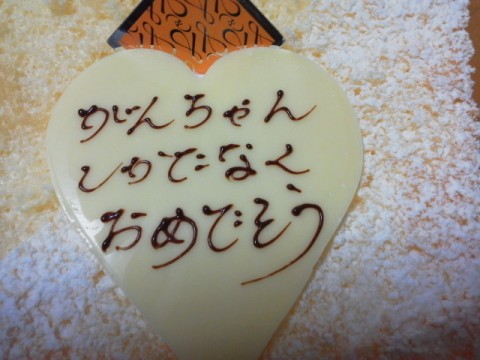 がんちゃん
しかたなく
おめでそう